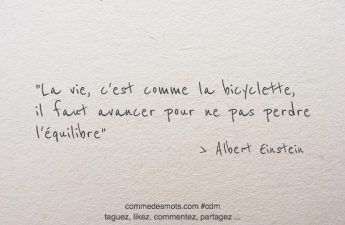 "La vie, c'est comme la bicyclette,
il faut avancer pour ne pas perdre
l'équilibre"
> Albert Einstein
commedesmots.com #cdm
taguez, likez, commentez, partagez ...